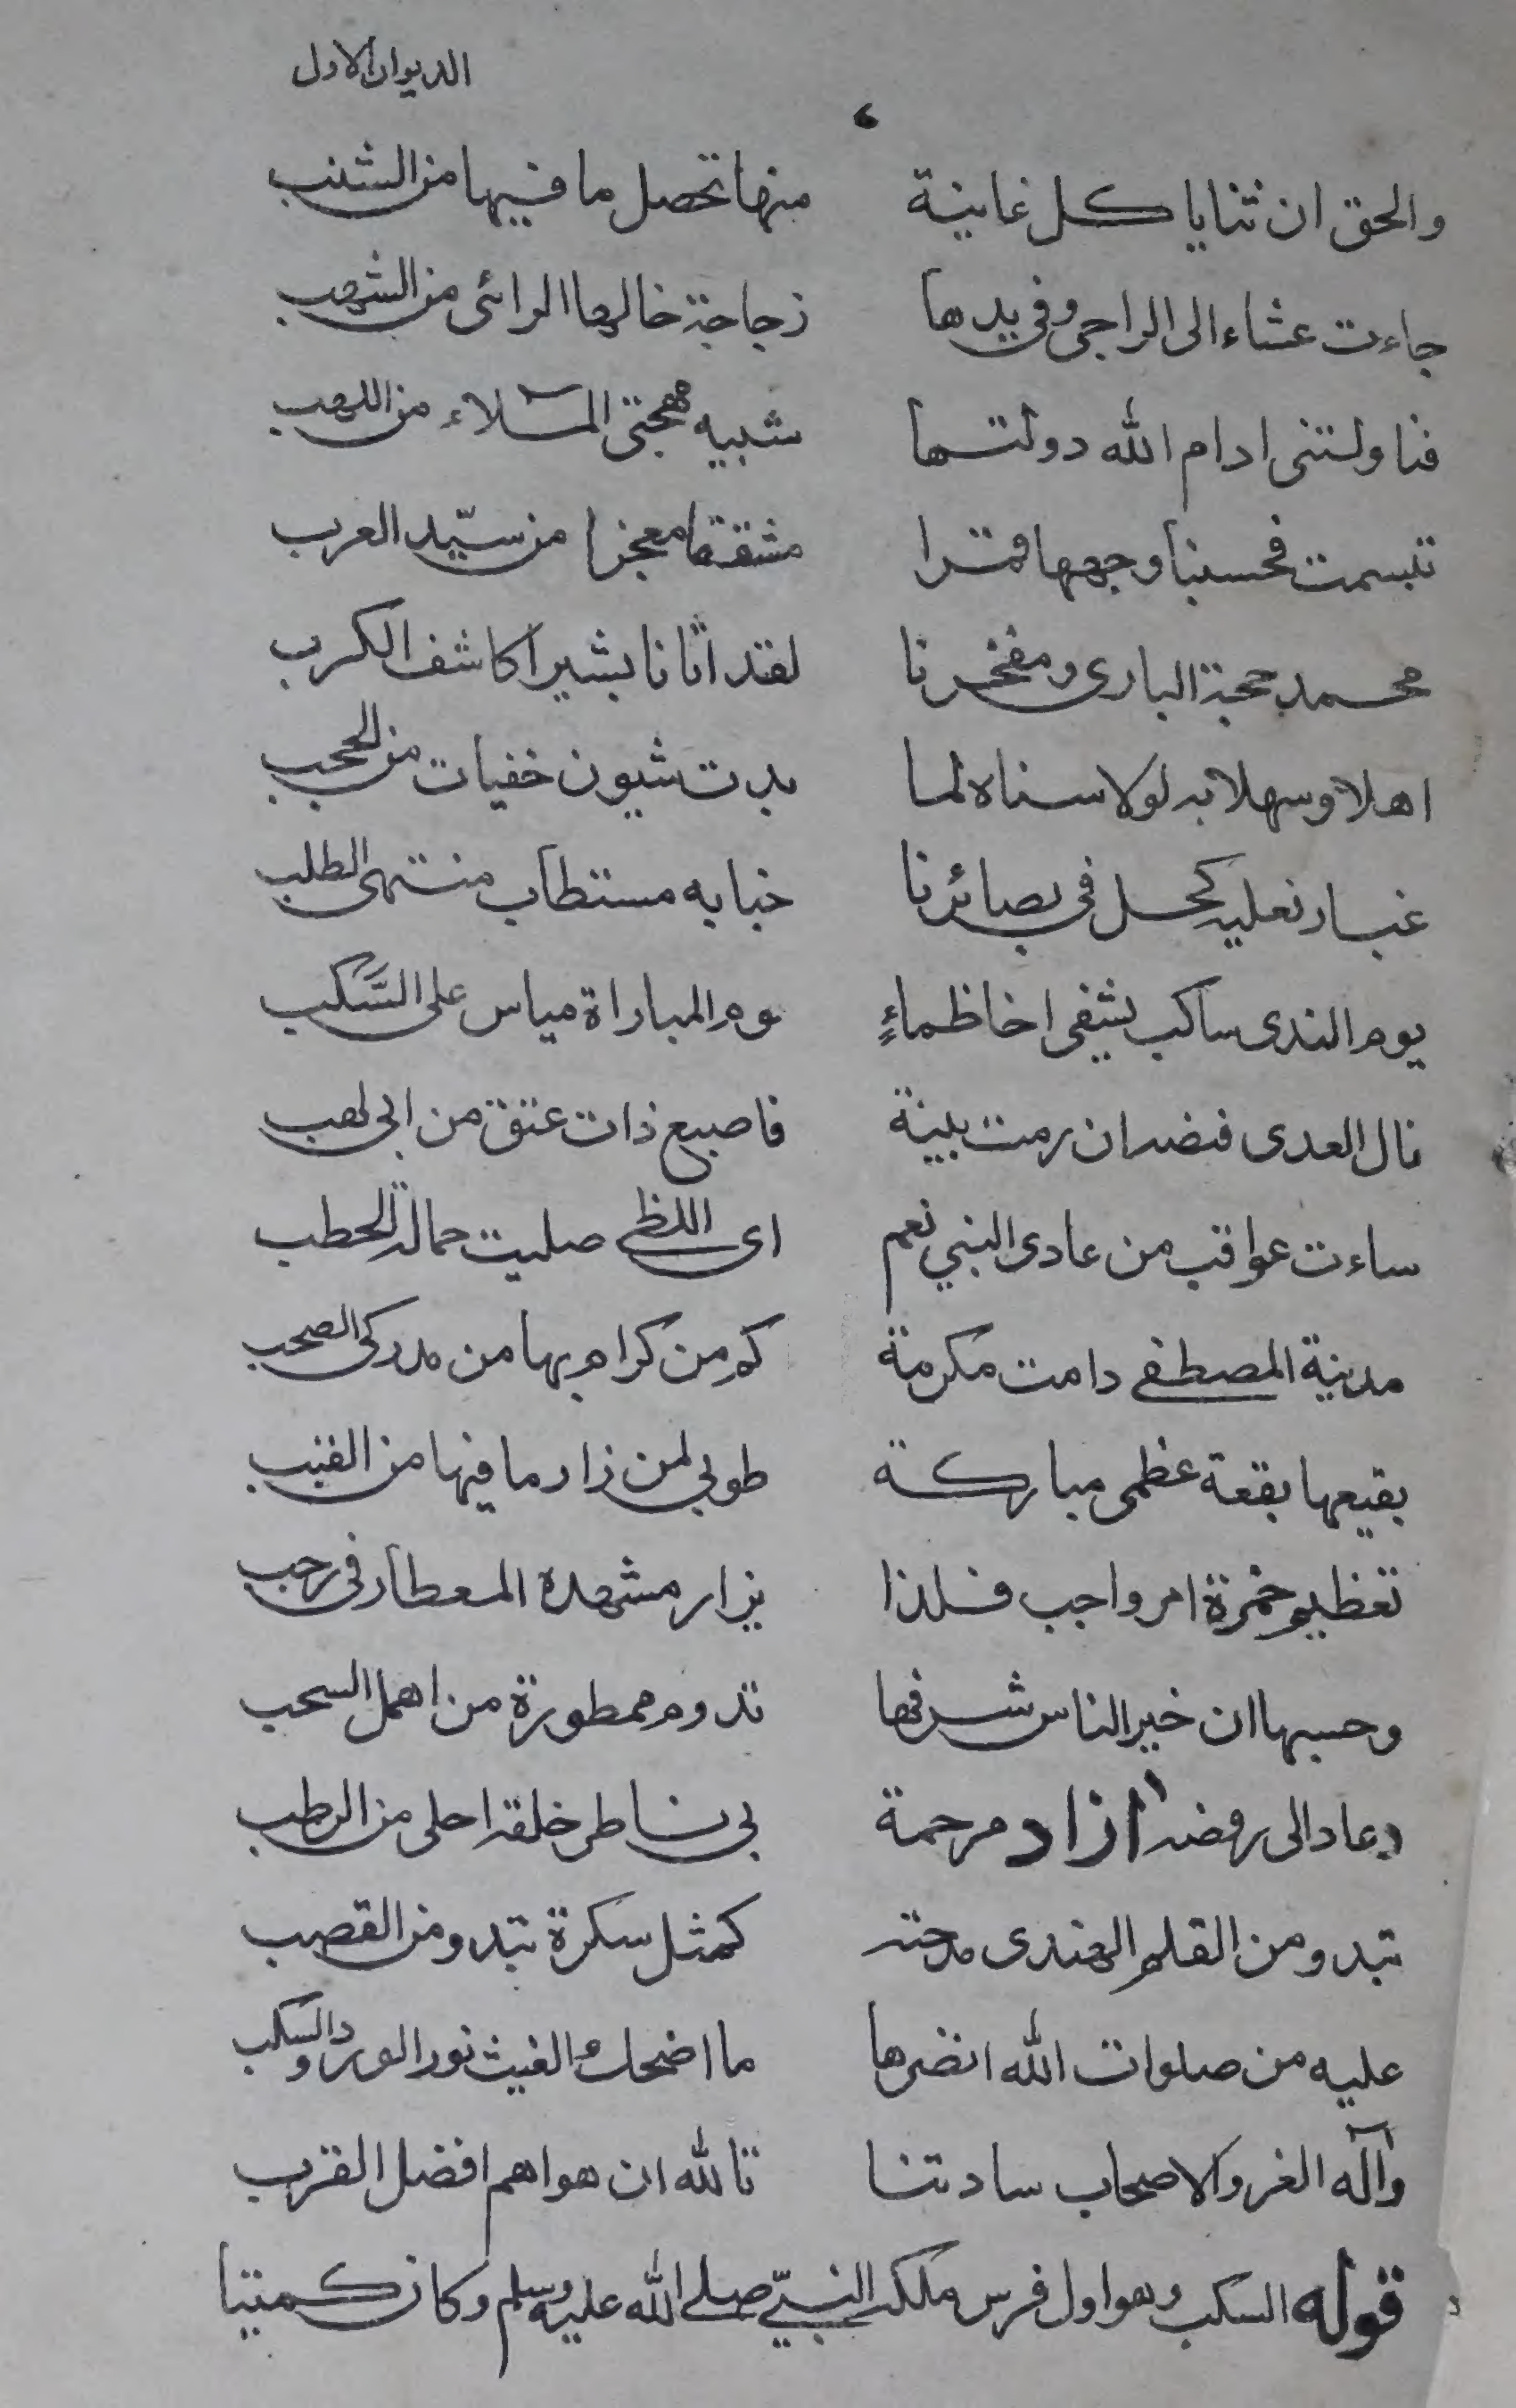 الديوان الاول
والحق ان ثنايا كل غانية منها تحصل ما فيها من الشنب
جاءت عشاء الى الراجى وفى يدها زجاجة خالها الرائى من الشهب
فناولتنى ادام الله دولتها شبيه مهجتى الملاء من اللهب
تبسمت فحسبنا وجهها قمرا مشققا معجزا من سيّد العرب
محمد حجة البارى ومفخرنا لقد اتانا بشيرا كاشف الكرب
اهلا وسهلا به لولا سناه لما بدت شيون خفيات من الحجب
غبار نعليه كحل فى بصائرنا خبابه مستطاب منتهى الطلب
يوم الندى ساكب يشفى اخا ظماءٍ يوم المباراة مياس على السَّكب
نال العدى فنضد ان رمت بينة فاصبع ذات عتق من ابى لهب
ساءت عواقب من عادى النبي نعم اى اللظى صليت حمالة الحطب
مدينة المصطفى دامت مكرمة كم من كرام بها من مدركى الصحب
بقيعها بقعة عظمى مباركة طوبى لمن زار ما فيها من القبب
تعظيم حمزة امر واجب فلذا يزار مشهده المعطار فى رجب
وحسبها ان خير الناس شرفها تدوم ممطورة من اهمل السحب
دعا دالى روضه ازاد مرحمة بى نشاطى خلقه احلى من الرطب
تبدو من القلم الهندى مدحته كمثل سكرة تبدو من القصب
عليه من صلوات الله انضرها ما اضحك الغيث نور الورد والسكب
وآله الغر والاصحاب سادتنا تالله ان هواهم افضل القرب
قوله السكب وهو اول فرس ملكه النبيّ صلى الله عليه وسلم وكان كميتا